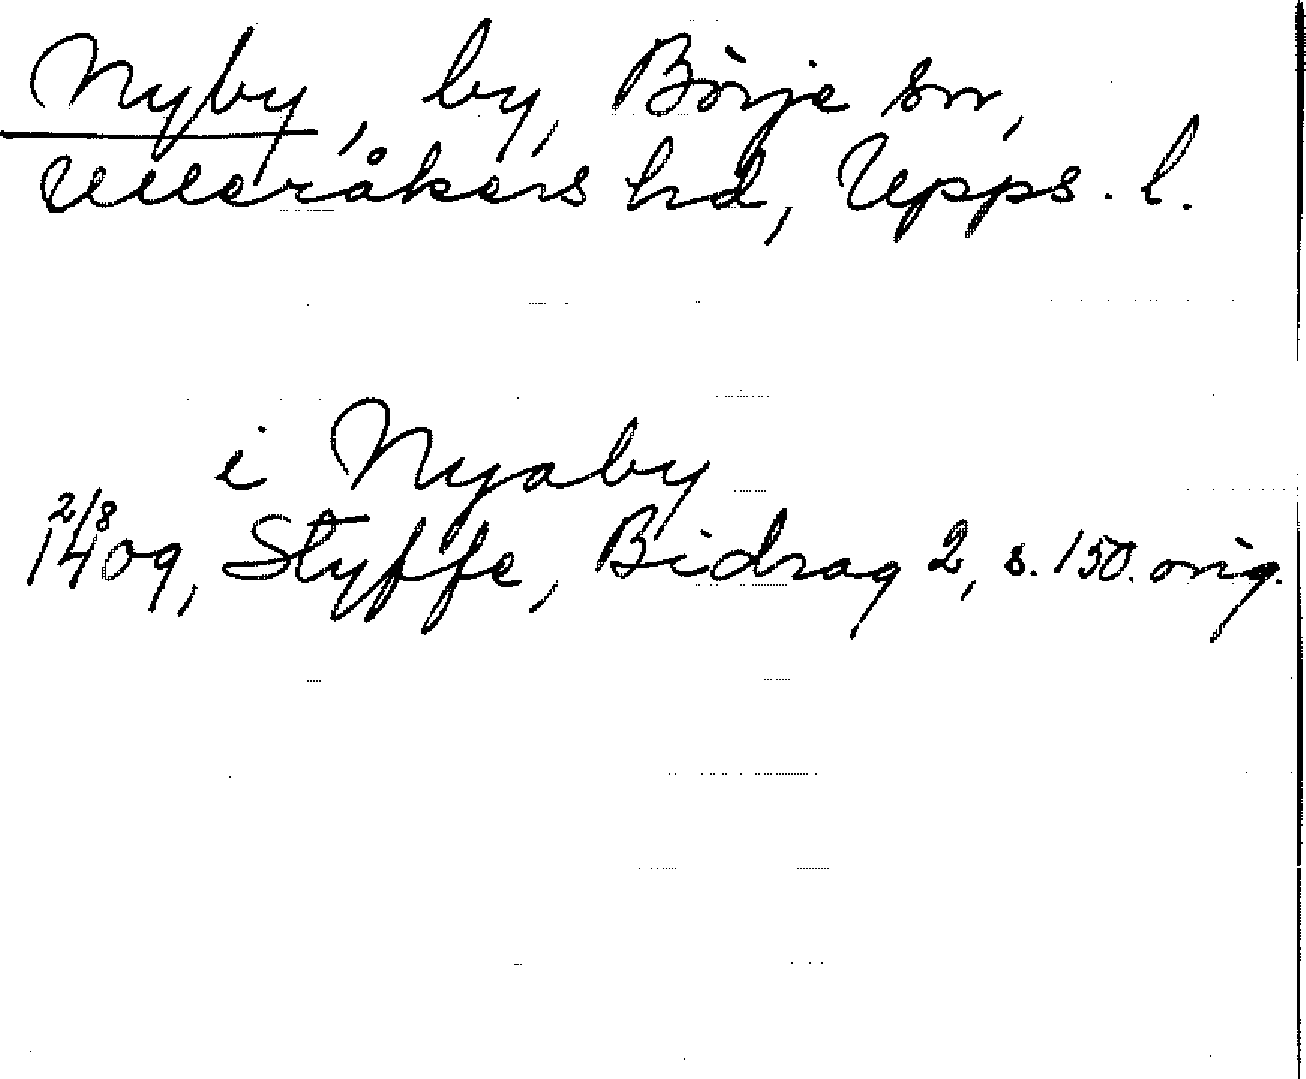 Nyby, by, Börje sn,
Ulleråkers hd, Upps. l.
i Nyaby
2/8 1409, Styffe, Bidrag 2, s. 150. orig.